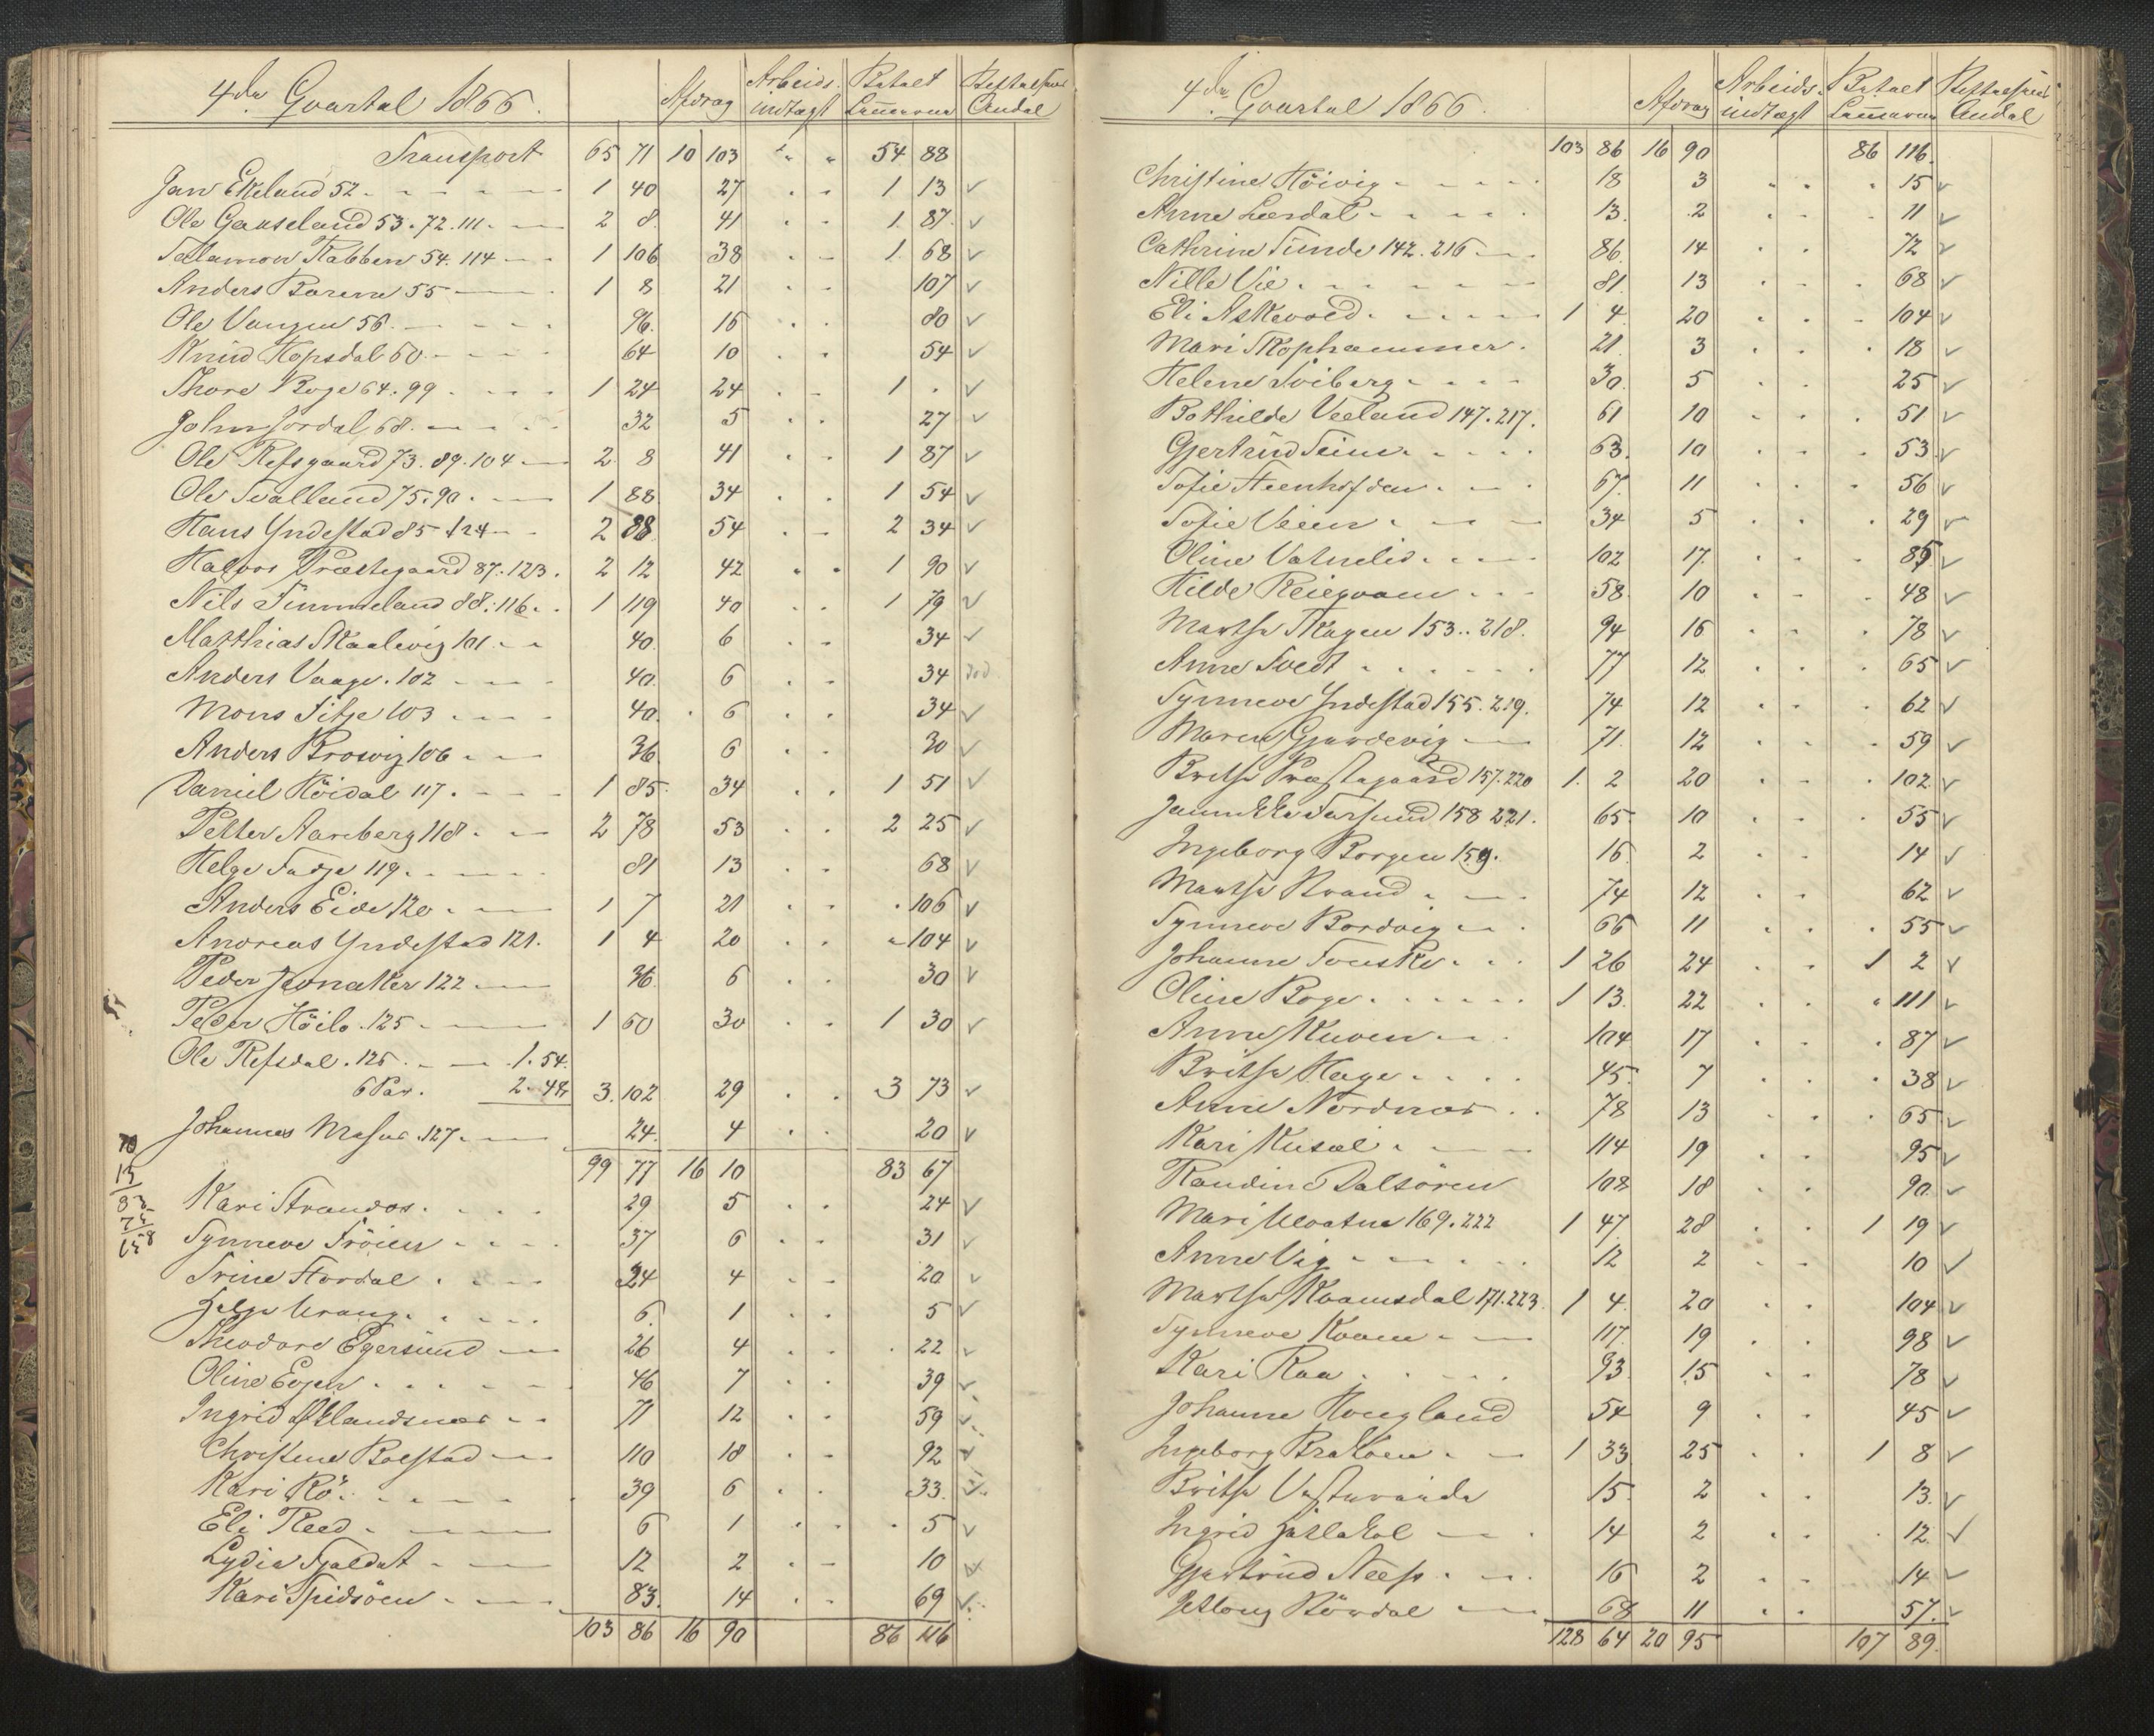 4de Qvartal 1866. Afdrag Arbeids- indtægt Betalt
Transport 65 71 10 103 " " 54 88
Jan Ekeland 52 1 40 27 1 13 ✓
Ole Gaaseland 53. 72. 111. 2 8 41 1 87 ✓
Salamon Rabben 54. 114 1 106 38 1 68 ✓
Anders Barene 55 1 8 21 107 ✓
Ole Vangen 56. 96. 16 80 ✓
Knud Hopsdal 60 64 10 54 ✓
Thore Boge 64. 99 1 24 24 1 . ✓
John Jordal 68. 32 5 27 ✓
Ole Refsgaard 73. 89. 104 2 8 41 1 87 ✓
Ole Svalland 75. 90. 1 88 34 1 54 ✓
Hans Yndestad 85 124 2 88 54 2 34 ✓
Halvor Præstegaard 87. 123. 2 12 42 1 90 ✓
Nils Tummeland 88. 116. 1 119 40 1 79 ✓
Matthias Skaalevig 101 40. 6 34 ✓
Anders Vaage. 102 40. 6 34
Mons Sitje 103 40. 6 34 ✓
Anders Brosvig 106 36 6 30 ✓
Daniel Höidal 117. 1 85. 34 1 51 ✓
Petter Aareberg 118. 2 78 53 2 25 ✓
Helge Fadje 119. 81 13 68 ✓
Anders Eide 120 1 7 21 106 ✓
Andreas Yndestad 121. 1 4 20 104 ✓
Peder Jevnaker 122 36 6 30 ✓
Peder Höilo. 125 1 60 30 1 30 ✓
Ole Refsdal. 126. 1. 54.
6 Par. 2. 48 3. 102 29 3 73 ✓
Johannes 127. 24. 4 20 ✓
99 77 16 10 83 67
Kari Strandos. 29 5 24 ✓
Synneve Fröien 37 6 31 ✓
Trine Hordal 24 4 20 ✓
Helge Urang 6. 1 5 ✓
Theodore Egersund 26 4 22 ✓
Oline Evjen 46 7 39 ✓
Ingrid Oklandsnes 71 12 59 ✓
Christine Boestad 110 18 92 ✓
Kari Rö. 39 6 33. ✓
Eli Reed 6 1 5 ✓
Lydia Fjeldat 12 2 10 ✓
Kari Spidsöen 83. 14 69 ✓
103 86 16 90 86 116
70
13
83
75
158
4de Qvartal 1866. Afdrag Arbeids- indtægt Betalt
103 86 16 90 86 116.
Christine Höivig 18 3 15 ✓
Anne Leerdal 13. 2 11 ✓
Cathrine Tunde 142. 216 86. 14 72 ✓
Nille Vie 81. 13 68 ✓
Eli Askevold 1 4 20 104 ✓
Mari Skophammer. 21. 3 18 ✓
Helene Soiberg 30. 5 25 ✓
Bothilde Veeland 147. 217. 61 10 51 ✓
Gjertrud Seim 63. 10 53 ✓
Sofie Steenhofden 67. 11 56 ✓
Sofie Veien 34 5 29 ✓
Oline Vatnelid 102 17. 85 ✓
Hilde Reiegvam 58. 10 48 ✓
Martha Skagen 153. 218. 94 16 78 ✓
Anne Tvedt 77 12 65 ✓
Synneve Yndestad 155. 219. 74 12 62 ✓
Maren Gjerdevig 71. 12 59 ✓
Britha Præstegaard 157. 220 1. 2 20 102 ✓
Jannikke Farsund 158 221. 65. 10 55 ✓
Ingeborg Borgen 159. 16. 2 14 ✓
Martha Strand 74 12 62 ✓
Synneve Bordvig 66 11 55 ✓
Johanne Fonske 1 26 24 1 2 ✓
Oline Boge 1 13. 22 111 ✓
Anne Kuven 104 17 87 ✓
Britha Hage 45. 7 38 ✓
Anne Nordnæs 78 13 65 ✓
Kari Kusæl 114 19 95 ✓
Randine Dalsören 108 18 90 ✓
Mari Ulvatne 169. 222 1 47. 28 1 19 ✓
Anne Vig 12 2 10 ✓
Martha Kvamsdal 171. 223. 1 4. 20 104 ✓
Synneve Kvam 117. 19 98 ✓
Kari Raa 93. 15 78 ✓
Johanne Hougland 54 9 45 ✓
Ingeborg Brakoen 1 33 25 1 8 ✓
Britha 15. 2 13. ✓
Ingrid 14 2 12 ✓
Gjertrud Neese 16 2 14 ✓
Rördal 68 11 57. ✓
128 64 20 95 107 89.